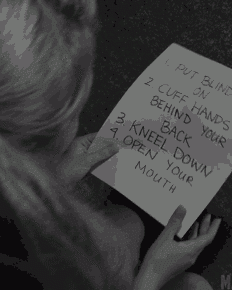 1. PUT BLIND
ON
2. CUFF HANDS
BEHIND YOUR
BACK
3. KNEEL DOWN
4. OPEN YOUR
MOUTH
M